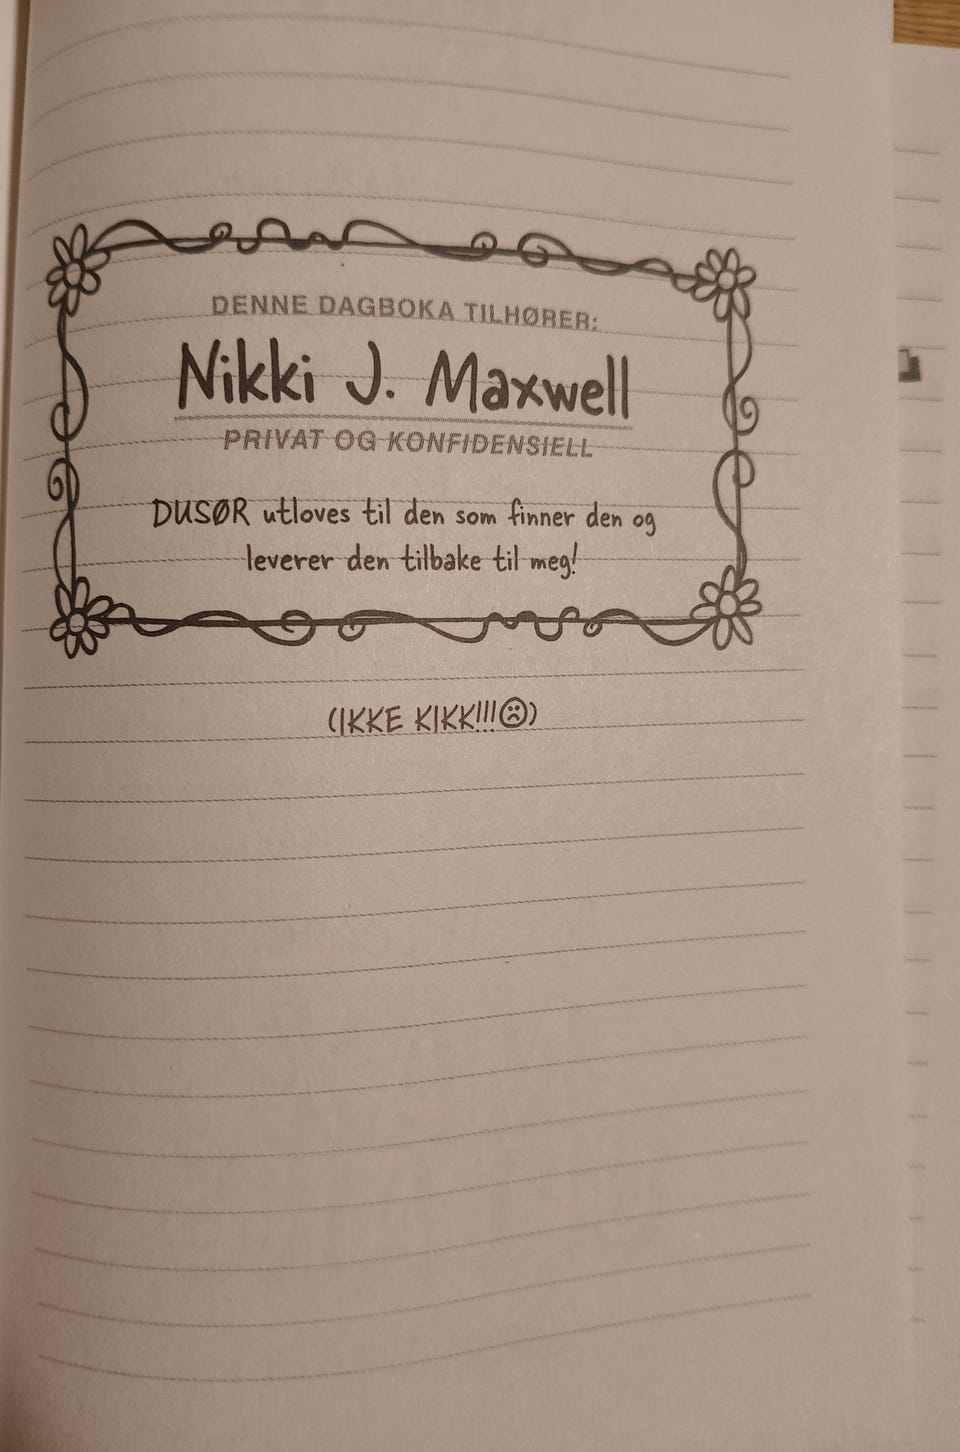 DENNE DAGBOKA TILHØRER:
Nikki J. Maxwell
PRIVAT OG KONFIDENSIELL
DUSØR utloves til den som finner den og
leverer den tilbake til meg!
(IKKE KIKK!!!☹)